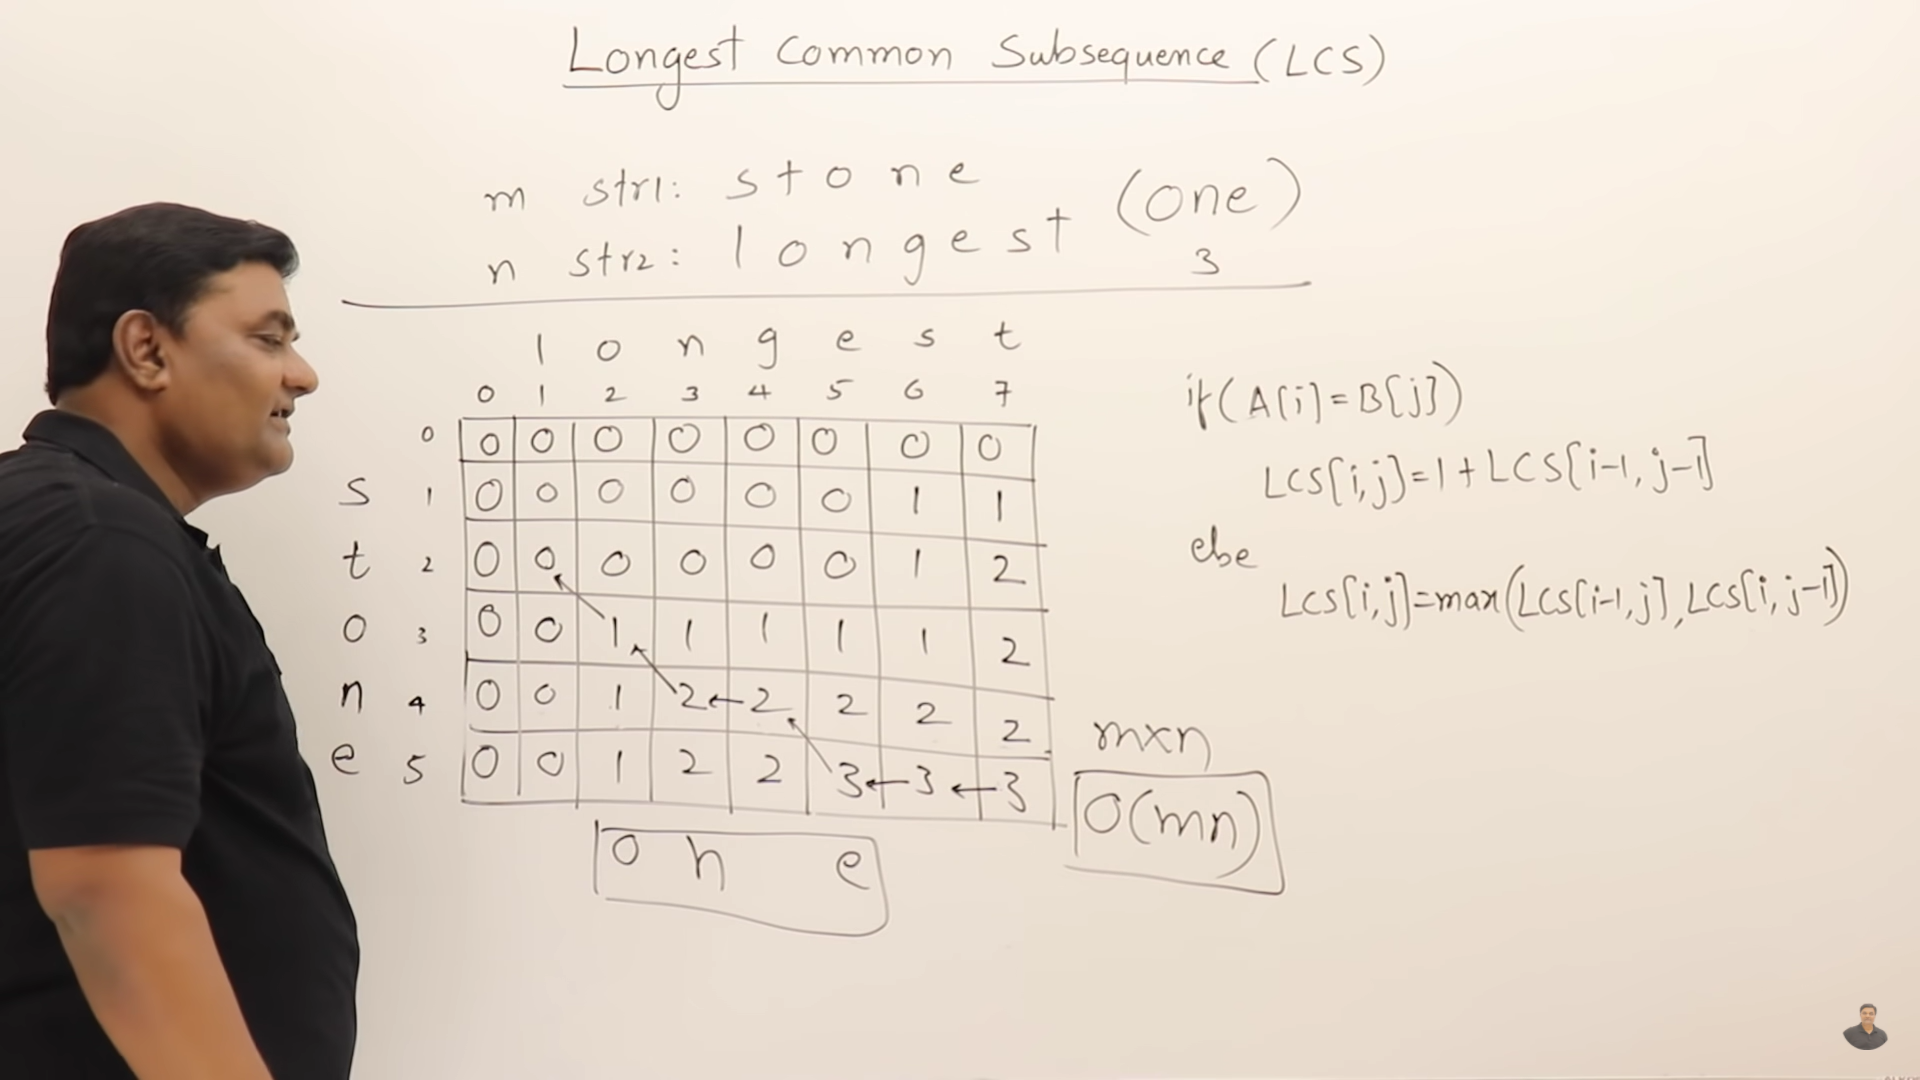 Longest Common Subsequence (LCS)
m str1: s t o n e (one)
n str2: l o n g e s t 3
l o n g e s t
0 1 2 3 4 5 6 7
0 0 0 0 0 0 0 0 0
s 1 0 0 0 0 0 0 1 1
t 2 0 0 0 0 0 0 1 2
o 3 0 0 1 1 1 1 1 2
n 4 0 0 1 2 ← 2 2 2 2
e 5 0 0 1 2 2 3 ← 3 ← 3
o n e
if(A[i]=B[j])
LCS[i,j]=1+LCS[i-1,j-1]
else
LCS[i,j]=max(LCS[i-1,j],LCS[i,j-1])
m×n
O(mn)